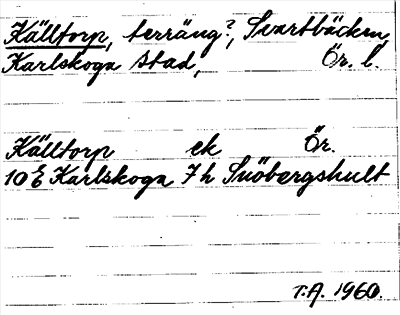 Källtorp, terräng?, Svartbäcken,
Karlskoga stad, Ör. l.
Källtorp ek Ör.
10 E Karlskoga 7 h Snöbergshult
T.A. 1960.